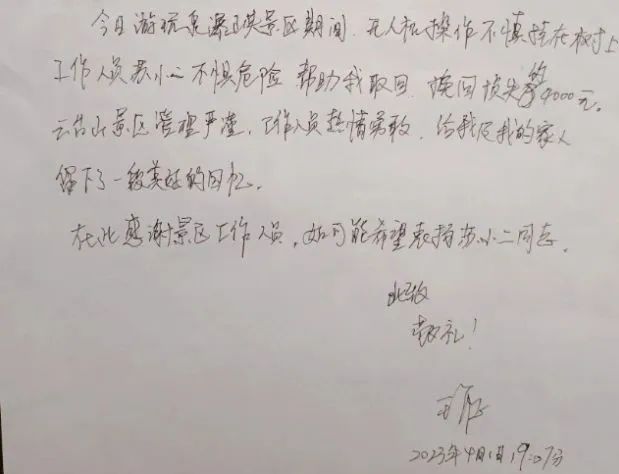 今日游玩泉瀑峡景区期间,无人机操作不慎挂在树上
工作人员苏小二不惧危险,帮助我取回,挽回损失约4000元。
云台山景区管理严谨,工作人员热情勇敢,给我及我的家人
留下了一段美好的回忆。
在此感谢景区工作人员,如可能希望表扬苏小二同志。
此致
敬礼!
2023年4月1日19:07分